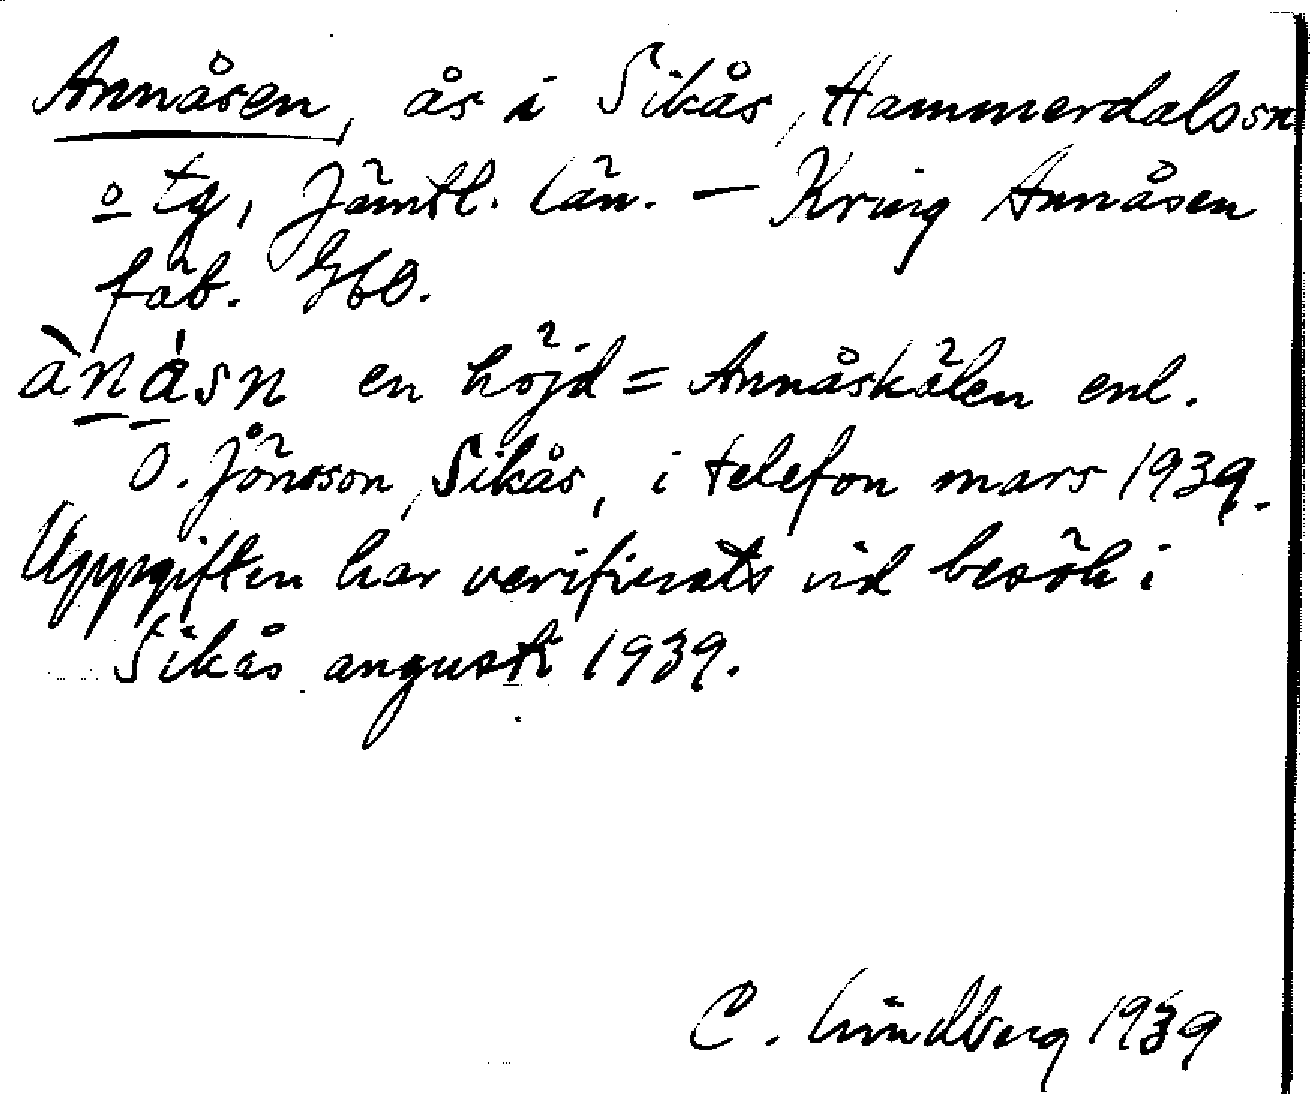 Annåsen, ås i Sikås, Hammerdals sn
o tg, Jämtl. län. – Kring Annåsen
fäb. Gbl.
ànåsn en höjd = Annåskälen enl.
O. Jönsson, Sikås, i telefon mars 1939.
Uppgiften har verifierats vid besök i
Sikås augusti 1939.
C. Lindberg 1939